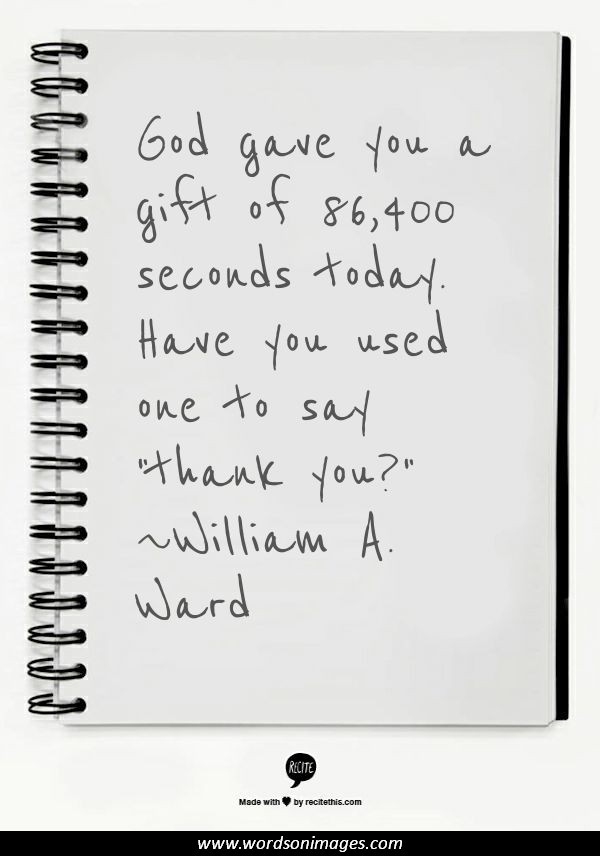 God gave you a
gift of 86,400
seconds today.
Have you used
one to say
"thank you?"
~William A.
Ward
RECITE
Made with ♥ by recitethis.com
www.wordsonimages.com